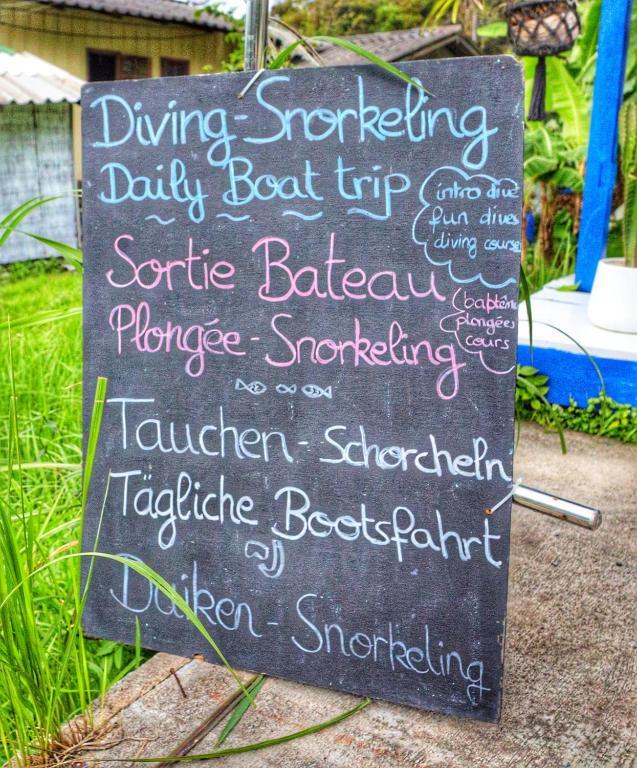 Diving-Snorkeling
Daily Boat trip
intro dive
fun dives
diving course
Sortie Bateau
Plongée-Snorkeling
baptême
plongées
cours
Tauchen - Schorcheln
Tägliche Bootsfahrt
Duiken-Snorkeling